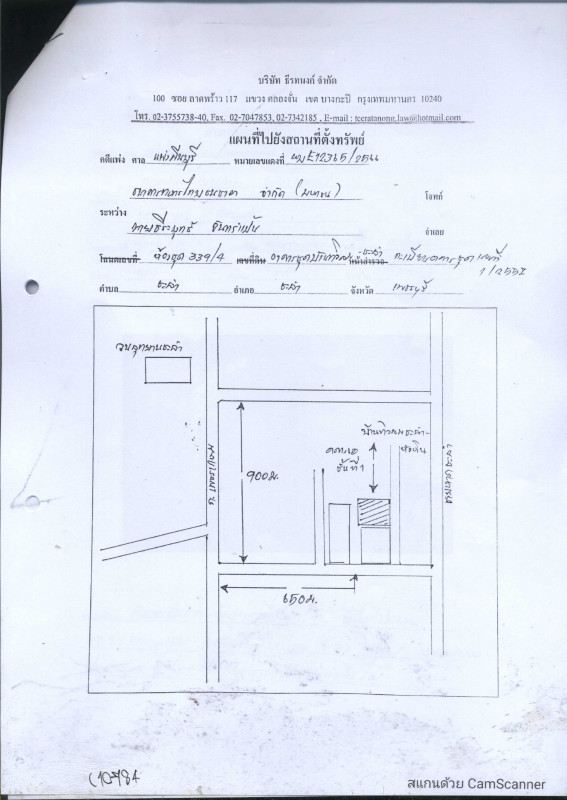 บริษัท ธีรทนงค์ จำกัด
100 ซอย ลาดพร้าว 117 แขวง คลองจั่น เขต บางกะปิ กรุงเทพมหานคร 10240
โทร. 02-3755738-40, Fax. 02-7047853, 02-7342185 , E-mail : teeratanong.law@hotmail.com
แผนที่ไปยังสถานที่ตั้งทรัพย์
คดีแพ่ง ศาล แพ่งมีนบุรี หมายเลขแดงที่ ผบE12365/2566
ธนาคารทหารไทยธนชาต จำกัด (มหาชน) โจทก์
ระหว่าง
จำเลย
โฉนดเลขที่ ห้องชุด 339/4 เลขที่ดิน ทะเบียนอาคารชุดเลขที่
1/2551
ตำบล ชะอำ อำเภอ ชะอำ จังหวัด เพชรบุรี
วนอุทยานชะอำ
บ้านทิวลมชะอำ-
หัวหิน
ชั้นที่ 1
900ม.
650ม.
สแกนด้วย CamScanner